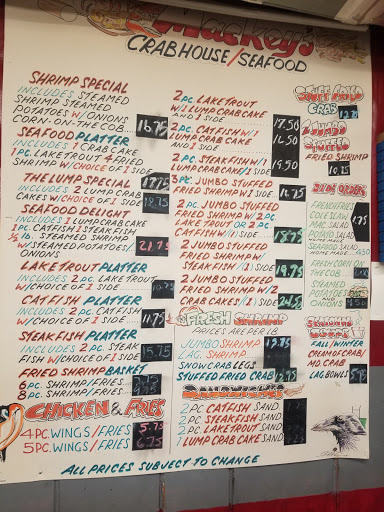 Mackey's
CRAB HOUSE/SEAFOOD
SHRIMP SPECIAL
INCLUDES STEAMED
SHRIMP STEAMED
POTATOES W/ONIONS
CORN-ON-THE-COB... 16.75
SEAFOOD PLATTER
INCLUDES 1 CRAB CAKE
1PC. LAKE TROUT 4 FRIED
SHRIMP W/CHOICE OF 1 SIDE
THE LUMP SPECIAL 17.75
INCLUDES 2 LUMP CRAB
CAKES W/CHOICE OF 1 SIDE
SEAFOOD DELIGHT
INCLUDES 1 LUMP CRAB CAKE
1PC. CATFISH 1 STEAK FISH
1/2 lb. STEAMED SHRIMP 21.75
W/STEAMED POTATOES/
ONIONS
LAKE TROUT PLATTER
INCLUDES 2 PC. LAKE TROUT
W/CHOICE OF 1 SIDE
CATFISH PLATTER
INCLUDES 2 PC. CATFISH
W/CHOICE OF 1 SIDE
STEAKFISH PLATTER
INCLUDES 2 PC. STEAK 15.75
FISH W/CHOICE OF 1 SIDE
FRIED SHRIMP BASKET
6 PC. SHRIMP/FRIES...
8 PC. SHRIMP/FRIES...
CHICKEN & FRIES
4 PC. WINGS/FRIES 5.75
5 PC. WINGS/FRIES 6.75
2 PC. LAKE TROUT
W/1 LUMP CRAB CAKE
AND 1 SIDE 17.50
2 PC. CATFISH W/1
LUMP CRAB CAKE 16.50
AND 1 SIDE
2 PC. STEAKFISH W/1
LUMP CRAB CAKE/1 SIDE
3 PC. JUMBO STUFFED
FRIED SHRIMP W/1 SIDE
2 PC. JUMBO STUFFED
FRIED SHRIMP W/2 PC.
LAKE TROUT OR 2 PC.
CATFISH W/1 SIDE
2 JUMBO STUFFED
FRIED SHRIMP W/
STEAKFISH /1 SIDE 19.75
2 JUMBO STUFFED
FRIED SHRIMP W/2
CRAB CAKES/1 SIDE
FRESH SHRIMP
PRICES ARE PER LB
JUMBO SHRIMP
LAG. SHRIMP
SNOW CRAB LEGS
STUFFED FRIED CRAB
SANDWICHES
2 PC CATFISH SAND.
2 PC STEAKFISH SAND
2 PC LAKE TROUT SAND
1 LUMP CRAB CAKE SAND
CRAB
JUMBO
STUFFED
FRIED SHRIMP
10.75
SIDE ORDERS
FRENCH FRIES
COLESLAW
MAC. SALAD
HOME MADE
FRESH CORN ON
THE COB
STEAMED
POTATOES
AND
ONIONS
FALL/WINTER
CREAM OF CRAB/
MD. CRAB
LAG BOWLS
ALL PRICES SUBJECT TO CHANGE